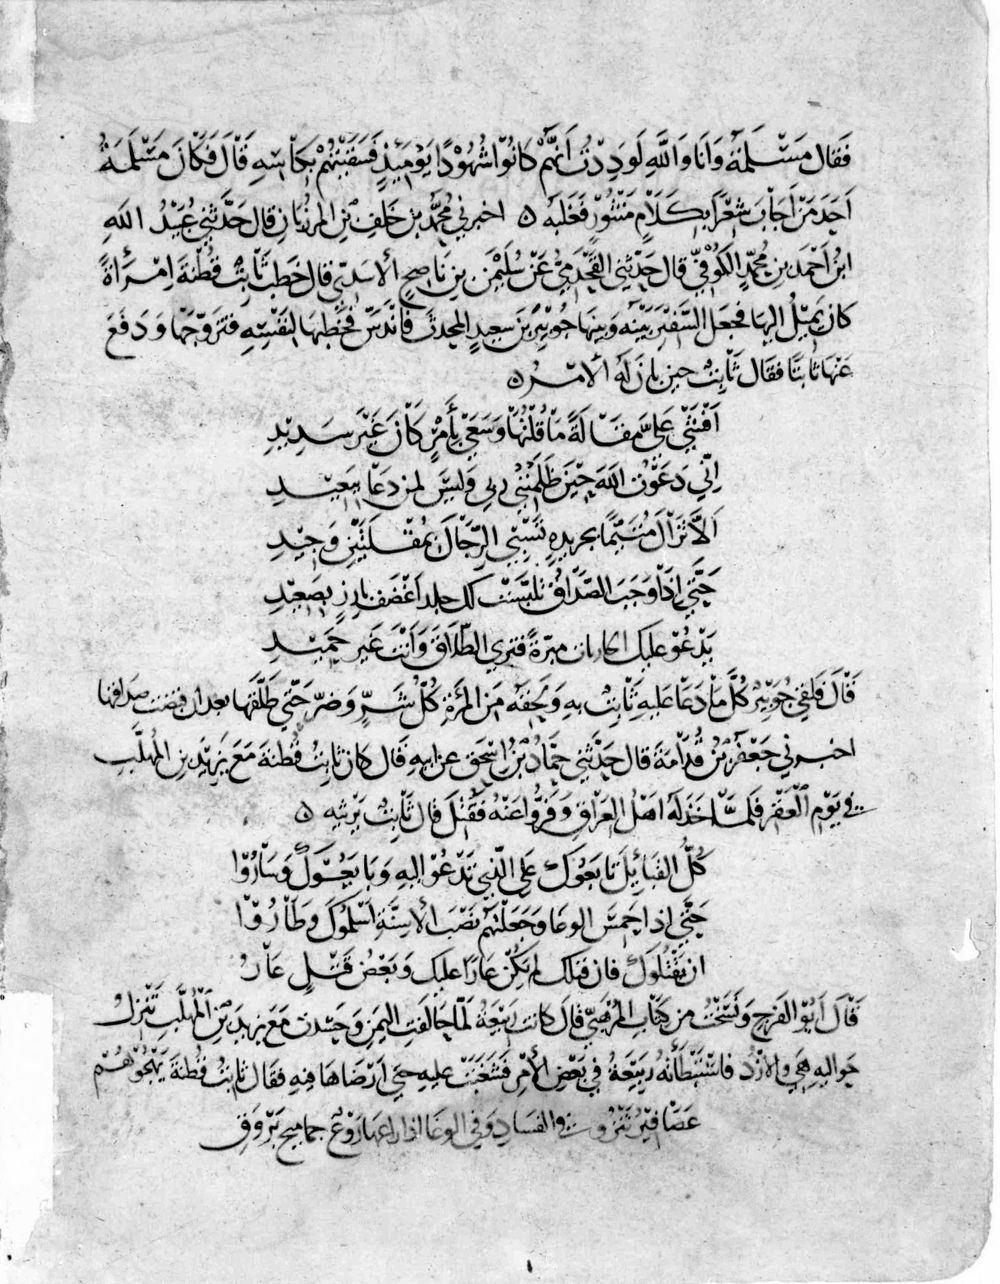 فَقال مَسْلَمَة وَأنا وَاللهِ لَوَدِدْتُ أنهم كانُوا شُهُوْدًا يَوْمَئِذٍ فَسَقَيْتُهُمْ بِكَأْسِهِ قَالَ فَكَانَ مَسْلَمَةُ
أحَدَ مَنْ أجَابَ شِعْرًا بِكَلَامٍ مَنْثُوْرٍ فَغَلَبَه ٥ اخبرني مُحَمَّد بن خَلَف بن المَرْزُبان قال حَدَّثني عُبَيْدُ اللهِ
ابنُ أحْمَد بن مُحَمَّدٍ الكُوْفِيّ قال حَدَّثني القَحْذَمِيّ عَنْ سُلَيْمٰن بن نَاصِحٍ الأسَدِيّ قال خَطَبَ ثَابِتُ قُطْنَةَ امْرَأةً
كان يَمِيْلُ اليها فجعل السَّفِيْرَ بَيْنَه وَبينها جُوَيْبِرَ بنَ سعيدٍ المحدث فَانْدَسّ فخطبها لنَفْسِهِ فتزوّجها وَدَفَعَ
عَنْها ثابتًا فقال ثَابِتُ حين بان لَهُ الأمْر ٥
أفْشَى عَلَيَّ مَقَالَةً مَا قُلْتُهَا وَسَعَى بِأَمْرٍ كَانَ غَيْرَ سَدِيْدِ
انِّي دَعَوْتُ اللهَ حِيْنَ ظَلَمْتَنِي ربي وَلَيْسَ لمن دَعَا بِبَعِيْدِ
ألَّا تَزَالَ مُتَيَّمًا بخريدةٍ تَسْبِي الرِّجَالَ بمُقْلَتَيْنِ وَجِيْدِ
حَتَّى إذا وَجَبَ الصَّدَاقُ تلبَّسَتْ لك جلد أغْضَف بارزٍ بِصَعِيْدِ
تَدْعُو عليك الحاريات مبرّةً فترى الطَّلاقَ وَأنْتَ غَير حَمِيْدِ
قَالَ فلقي جُوَيْبِر كُلَّ مَا دَعَا عَليه ثَابِتُ به وَلَحِقَه مِنَ المَرْأةِ كُلُّ شَرٍّ وَضرّ حَتَّى طَلَّقَها بعد أن قبضت صداقها
اخبرني جَعْفَر بنُ قُدَامَةَ قال حَدَّثني حَمَّادُ بْنُ إسْحٰق عن ابيهِ قال كان ثابِتُ قُطْنة مَعَ يَزِيْد بن المُهَلَّبِ
في يَوْمِ الْعَقْر فلَمَّا خَذَلَهُ أهْلُ العِرَاقِ وَفَرُّوا عَنْهُ فَقُتِلَ قال ثَابِتُ يَرْثِيه ٥
كُلُّ القبائِل تابَعُوكَ عَلى الَّذِي تَدْعُو إليهِ وَبَايَعُوكَ وَسَارُوا
حَتَّى إذا حَمِسَ الوغا وَجَعَلْتَهُم نَصْبَ الأسِنَّةِ أسْلَمُوكَ وَطَارُوْا
ان يَقْتُلُوكَ فإن قتلك لم يكُنْ عَارًا عليك وَبَعْضُ قَتْلٍ عَارُ
قَالَ أبُوْ الفَرَج وَنَسَخْتُ من كتَابِ المُرْهِبِيّ قال كانت رَبِيْعَةُ لمَّا حَالَفَتِ اليَمَن وَحَشَدت مَعَ يزيد بن الْمُهَلَّبِ تَنْزِلُ
حواليه هي والأزد فاسْتَبْطَأتْهُ رَبِيْعَةُ في بَعْضِ الأَمْرِ فشَغَبَتْ عليه حتى أرْضَاهَا فيهِ فقال ثَابِتُ قُطْنَةَ يَهْجُوْهُمْ
عَصَافِيْرُ تَنْزُو في الفَسادِ وَفي الوغا اذا راعها رَوْعٌ جماميح بَرْوَقِ